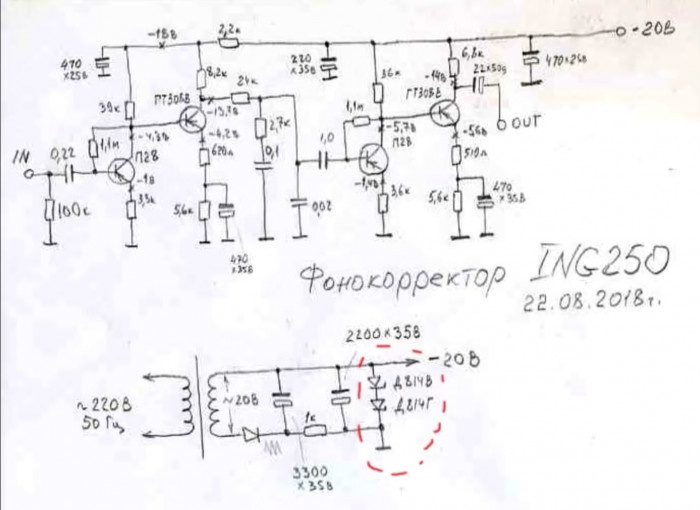 -18В
2,2к
-20В
470
×25В
8,2к
220
×35В
36к
6,8к
-14В
22×50В
470×25В
39к
ГТ308В
24к
-13,7В
1,1м
ГТ308В
OUT
-4,3В
-4,2В
2,7к
1,0
-5,7В
-5,6В
IN
0,22
1,1м
П28
620л
0,1
П28
510л
-1В
-1,4В
100к
3,3к
5,6к
0,02
3,6к
5,6к
470
×35В
470
×35В
Фонокорректор ING250
22.08.2018г.
2200×35В
-20В
~220В
50 Гц
~20В
Д814В
Д814Г
1к
3300
×35В